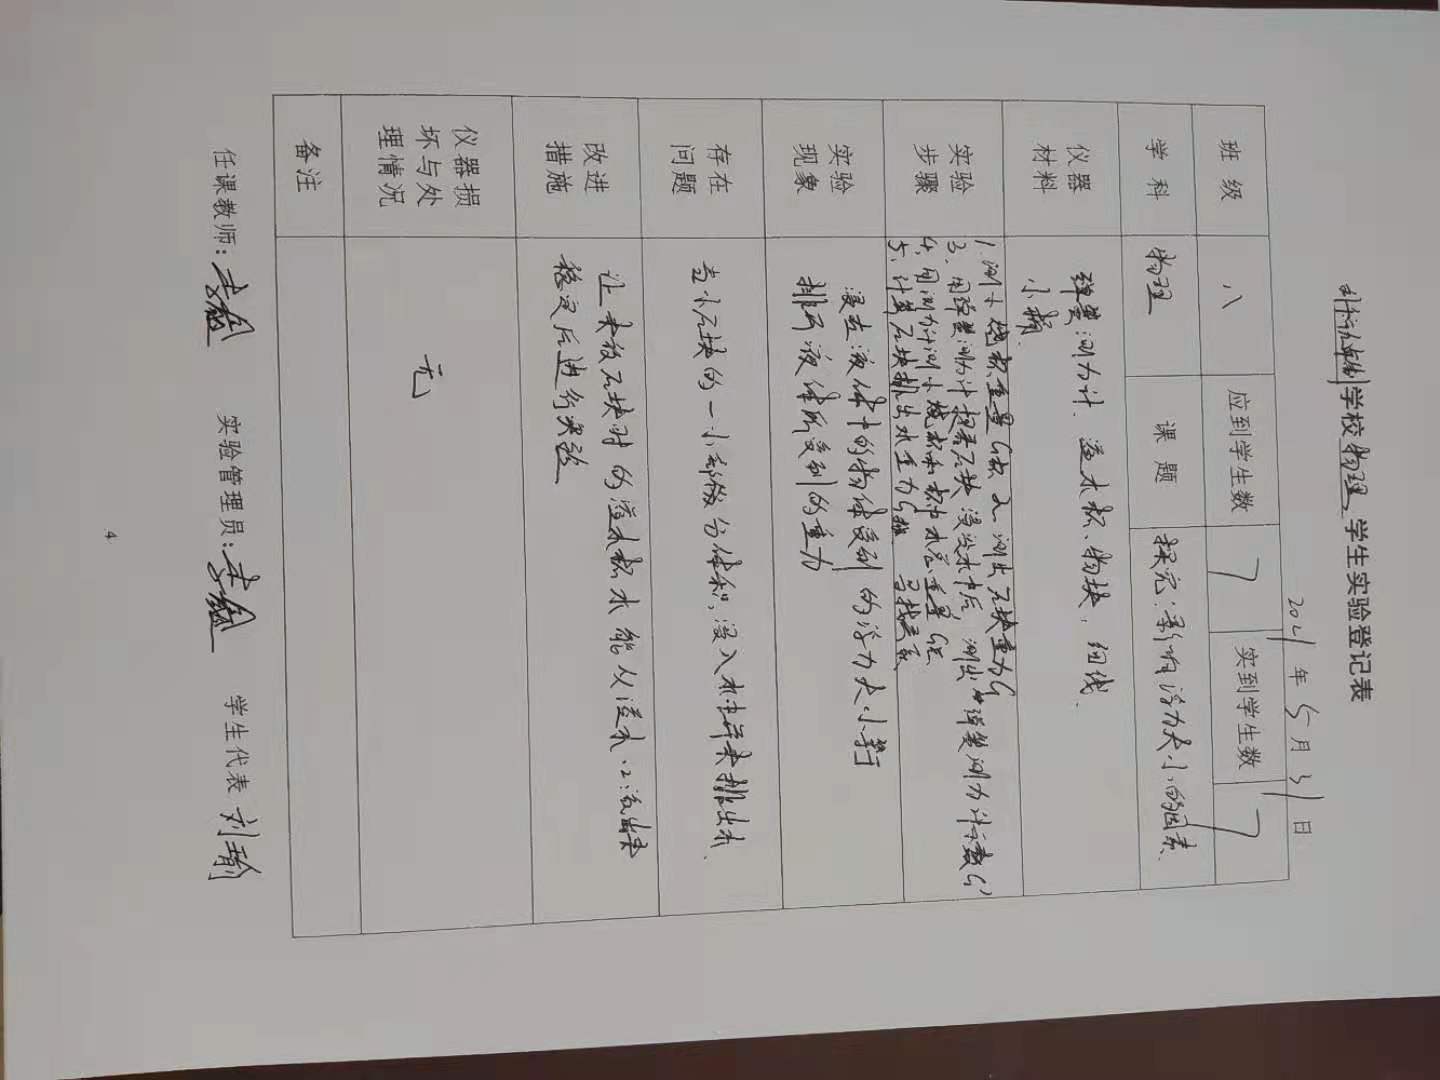 学校物理学生实验登记表
2021年5月31日
班级 八 应到学生数 7 实到学生数 7
学科 物理 课题 探究:影响浮力大小的因素
仪器材料 弹簧测力计、溢水杯、物块、细线、
小桶
实验步骤 1.测小烧杯重量G杯 2.测出石块重力G
3、用弹簧测力计提着石块浸没水中后,测出弹簧测力计示数G'
4、用测力计测小烧杯和杯中水总重量G总
5、计算石块排出水重力G排 寻找关系
实验现象 浸在液体中的物体受到的浮力大小等于
排开液体所受到的重力
存在问题 当小石块的一小部分体积,浸入水中并未排出水、
改进措施 让未放石块时的溢水杯水能从溢水口流出
稳定后进行实验
仪器损坏与处理情况 无
备注
任课教师: 实验管理员: 学生代表 刘瑜
4